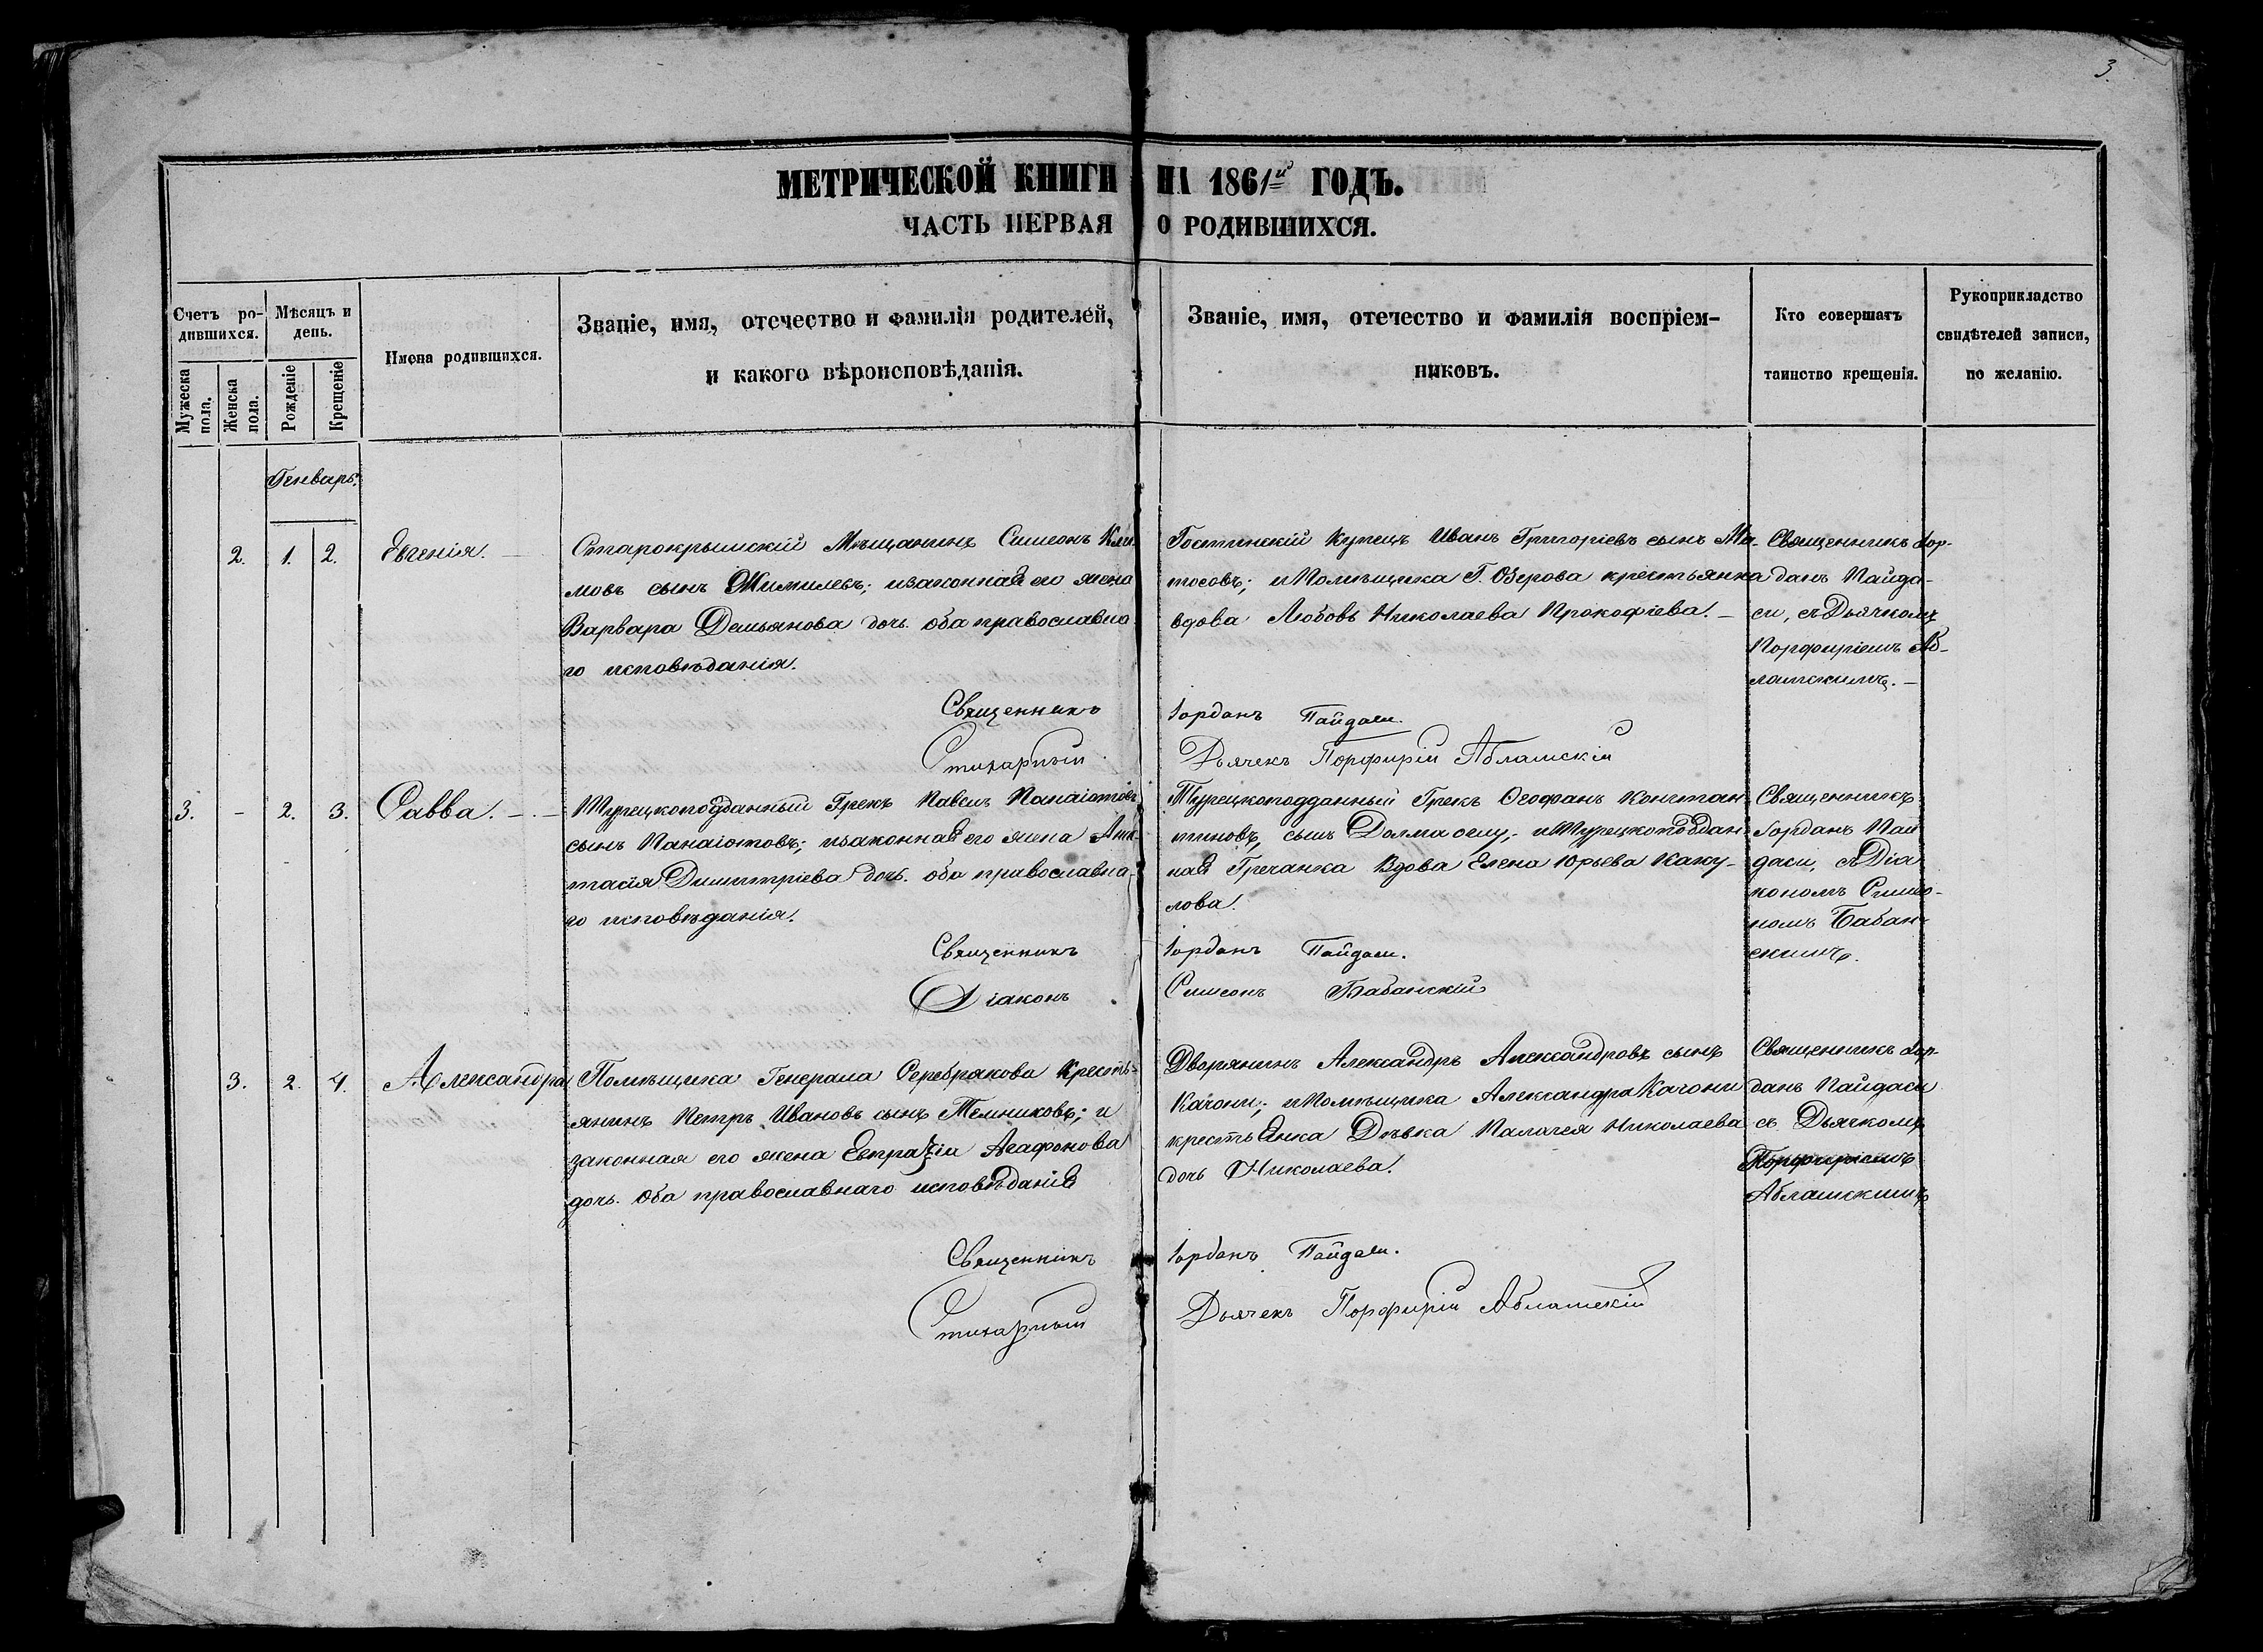 3
МЕТРИЧЕСКОЙ КНИГИ НА 1861й ГОДЪ.
ЧАСТЬ ПЕРВАЯ О РОДИВШИХСЯ.
Счетъ ро-
дившихся.
Мужеска
пола.
Женска
пола.
Мѣсяцъ и
день.
Рожденіе
Крещеніе
Имена родившихся.
Званіе, имя, отечество и фамилія родителей,
и какого вѣроисповѣданія.
Званіе, имя, отечество и фамилія воспріем-
никовъ.
Кто совершатъ
таинство крещенія.
Рукоприкладство
свидѣтелей записи,
по желанію.
Генварь.
2. 1. 2. Евгенія.
Старокрымскій Мѣщанинъ Симеонъ Кли-
мовъ сынъ Жимилевъ; изаконная его жена
Варвара Демьянова дочь. оба православна
го исповѣданія.
Священникъ
Стихарный
Купецъ Иванъ Григоріевъ сынъ Ма-
тосовъ; иПомѣщика Г. Озерова крестьянка
вдова Любовь Николаева Прокофіева.
Іорданъ Пайдаси.
Дьячекъ Порфирій Аблашскій
Священникъ Іор-
данъ Пайда-
си, съ Дьячкомъ
Порфиріемъ Аб-
лашскимъ.
3. - 2. 3. Савва.
Турецкоподданный Грекъ Павелъ Панаіотовъ
сынъ Панаіотовъ; изаконная его жена Ана-
тасія Димитріева дочь. оба православна-
го исповѣданія.
Священникъ
Діаконъ
Турецкоподданный Грекъ Ѳеофанъ Констан
тиновъ, сынъ Долма оглу; иТурецкоподдан
ная Гречанка Вдова Елена Юрьева Каку-
лова.
Іорданъ Пайдаси.
Симеонъ Бабанскій
Священникъ
Іорданъ Пай
даси, съ Діа
кономъ Симео-
номъ Бабан-
скимъ.
3. 2. 4. Александра
Помѣщика Генерала Серебрякова Кресть-
янинъ Петръ Ивановъ сынъ Темниковъ; и
законная его жена Евпраксіи Агафонова
дочь. Оба православнаго исповѣданія
Священникъ
Стихарный
Дворянинъ Александръ Александровъ сынъ
Качони; иПомѣщика Александра Качони
крестьянка Дѣвка Палагея Николаева
дочь Николаева.
Іорданъ Пайдаси.
Дьячекъ Порфирій Аблашскій
Священникъ Іор-
данъ Пайдаси
съ Дьячкомъ
Порфиріемъ
Аблашскимъ